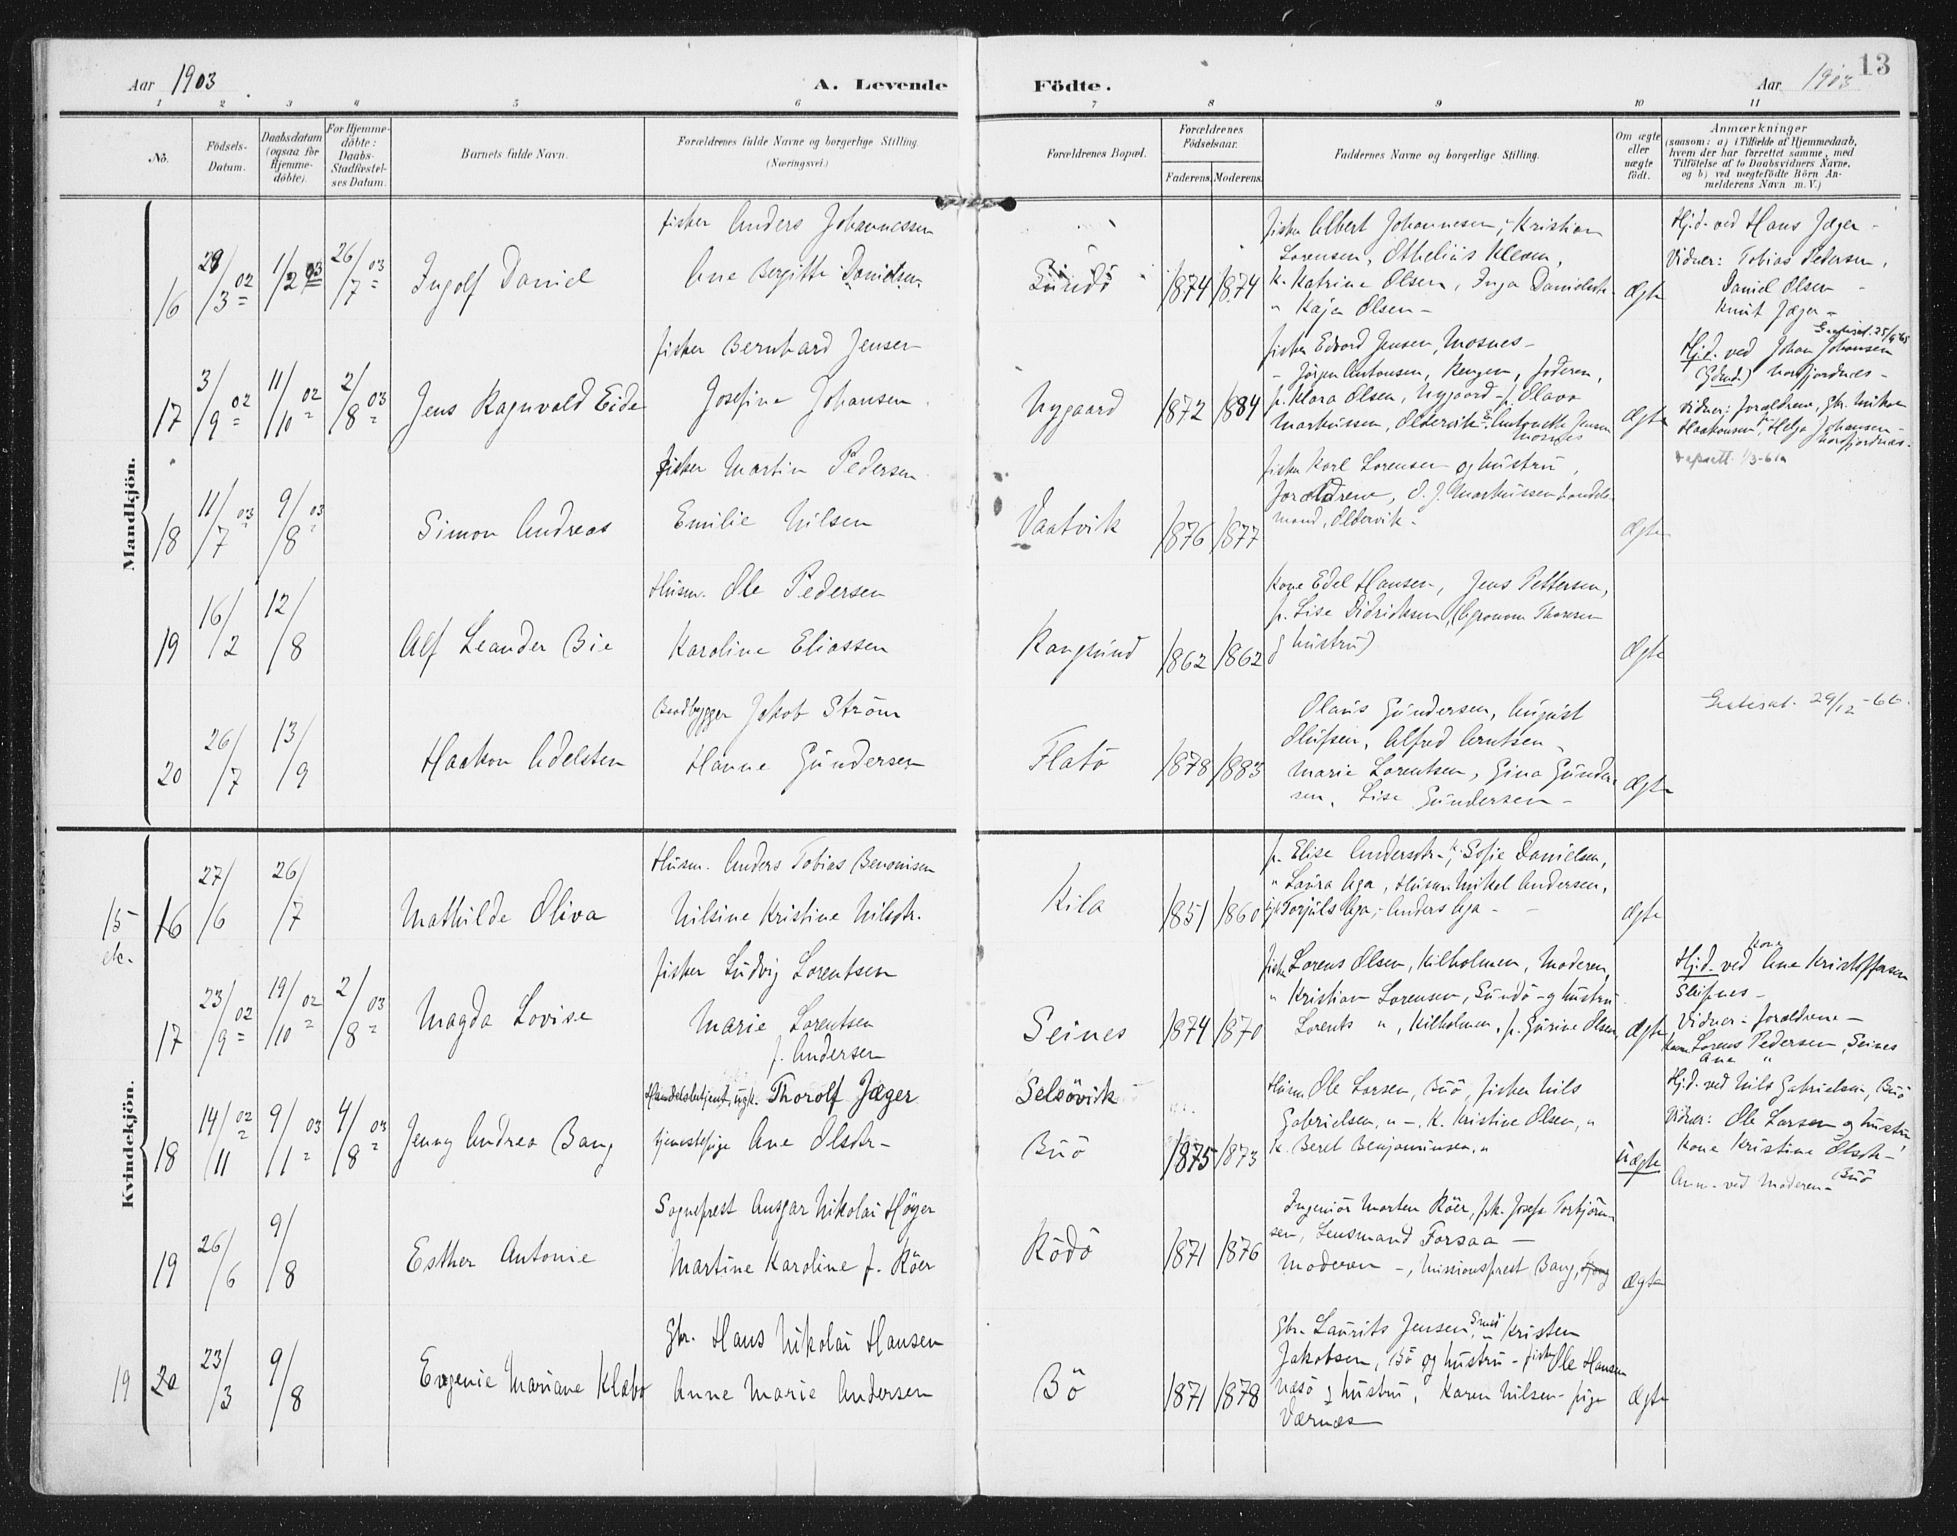 Aar 1903
A. Levende
Födte.
Aar 1903
13
1 2 3 4 5 6 7 8 9 10 11
No.
Födsels-
Datum.
Daabsdatum
(ogsaa for
Hjemme-
döbte).
For Hjemme-
döbte:
Daabs-
Stadfæstel-
ses Datum.
Barnets fulde Navn.
Forældrenes fulde Navne og borgerlige Stilling.
(Næringsvei.)
Forældrenes Bopæl.
Forældrenes
Födselsaar.
Faderens. Moderens.
Faddernes Navne og borgerlige Stilling.
Om ægte
eller
uægte
födt.
Anmærkninger
(saasom: a) i Tilfælde af Hjemmedaab,
hvem der har forrettet samme, med
Tilföielse af to Daabsvidners Navne,
og b) ved uægtefödte Börn An-
melderens Navn m. V.)
Mandkjön.
16 28/3 02 1/2 03 26/7 03 Ingolf Daniel
fisker Anders Johannessen
Ane Bergitte Danielsen
Sundö 1874 1874
fisker Albert Johannesen, Kristian
Lorensen, Othelius Klevn,
k. Katrine Olsen, Inga Danielsdtr.
" Kaja Olsen -
Ægte
Hjd. ved Hans Jæger -
Vidner: Tobias Pedersen,
Daniel Olsen -
Knut Jæger -
17 3/9 02 11/10 02 2/8 03 Jens Ragnvald Eide
fisker Bernhard Jensen
Josefine Johansen
Nygaard 1872 1884
fisker Edvard Jensen, Mosnes -
- Jörgen Antonsen, Rengen, Faderen,
p. Klara Olsen, Nygaard - p. Olava
Markussen, Oldervik - Antonette Jensen
Mosnes
Ægte
Hjd. ved Johan Johansen
Nordfjordnæs -
Vidner: Forældrene, Gbr. Mikal
Haakonsen, Helga Johansen -
Nordfjordnæs.
18 11/7 03 9/8 03 Simon Andreas
fisker Martin Pedersen
Emilie Nilsen
Vaatvik 1876 1877
fisker Karl Lorensen og hustru,
Forældrene, O. J. Markussen Handels-
mand, Oldervik -
Ægte
19 16/2 12/8 Alf Leander Bie
Husm. Ole Pedersen
Karoline Eliassen
Rangsund 1862 1862
Kone Edel Hansen, Jens Pettersen,
p. Lise Didriksen, (Agronom Thoresen
og hustru)
Ægte
20 26/7 13/9 Haakon Adelsten
Baadbygger Jakob Ström
Hanne Gundersen
Flatö 1878 1883
Olaus Gundersen, August
Olufsen, Alfred Arntsen,
Marie Lorentsen, Gina Gunder-
sen, Lise Gundersen -
Ægte
29/12-66.
Kvindekjön.
15 16 27/6 26/7 Mathilde Oliva
Husm. Anders Tobias Benonisen
Nilsine Kristine Nilsdtr.
Kila 1851 1860
p. Elise Andersdtr., k. Sofie Danielsen,
" Laura Aga, Husm. Mikel Andersen,
Torjuls Aga, Anders Aga -
Ægte
17 23/9 02 19/10 02 2/8 03 Magda Lovise
fisker Ludvig Lorentsen
Marie Lorentsen
f. Andersen
Seines 1874 1870
fisker Lorens Olsen, Kilholmen, Moderen,
" Kristian Lorensen, Sundö - og hustru
Lorents ", Kilholmen, p. Gurine Olsen,
Ægte
Hjd. ved Kone Ane Kristoffersen
Vidner - Forældrene -
Lorens Pedersen, Seines
Kone Ane "
18 14/11 02 9/1 03 4/8 03 Jenny Andrea Bang
Handelsbetjent, ugk. Thorolf Jæger
tjenestepige Ane Olsdtr -
Selsövik
Buö 1875 1873
Husm Ole Larsen, Buö, fisker Nils
Gabrielsen, " -. K. Kristine Olsen, "
K. Beret Benjaminsen, "
Uægte
Hjd. ved Nils Gabrielsen, Buö
Vidner: Ole Larsen og hustru,
Kone Kristine Olsdtr -
Buö
Anm. ved Moderen -
19 26/6 9/8 Esther Antonie
Sogneprest Ansgar Nikolai Höyer
Martine Karoline f. Röer
Rödö 1871 1876
Ingeniör Morten Röer, frk. Josefa Torbjörn-
sen, Lensmand Forsaa -
Moderen -, Missionsprest Bang,
Ægte
19 20 23/3 9/8 Eugenie Mariane Klæbo
Gbr. Hans Nikolai Hansen
Anne Marie Andersen
Bö 1871 1878
Gbr. Laurits Jensen, Kristen
Jakobsen, Bö og hustru - fisker Ole Hansen
Næsö og hustru, Karen Nilsen - pige
Værnæs
Ægte